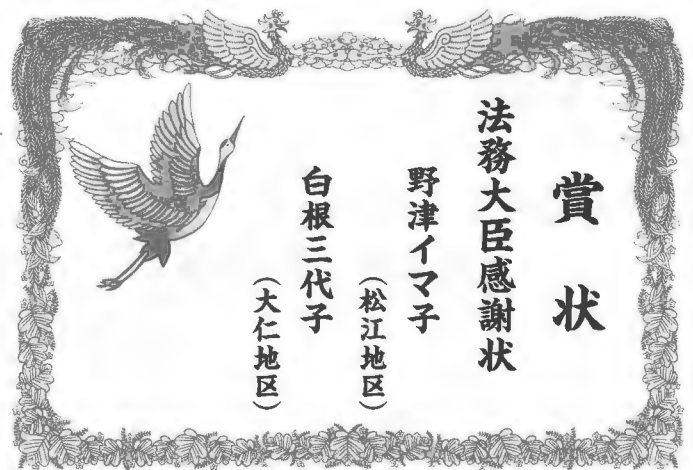 賞状
法務大臣感謝状
野津イマ子
（松江地区）
白根三代子
（大仁地区）